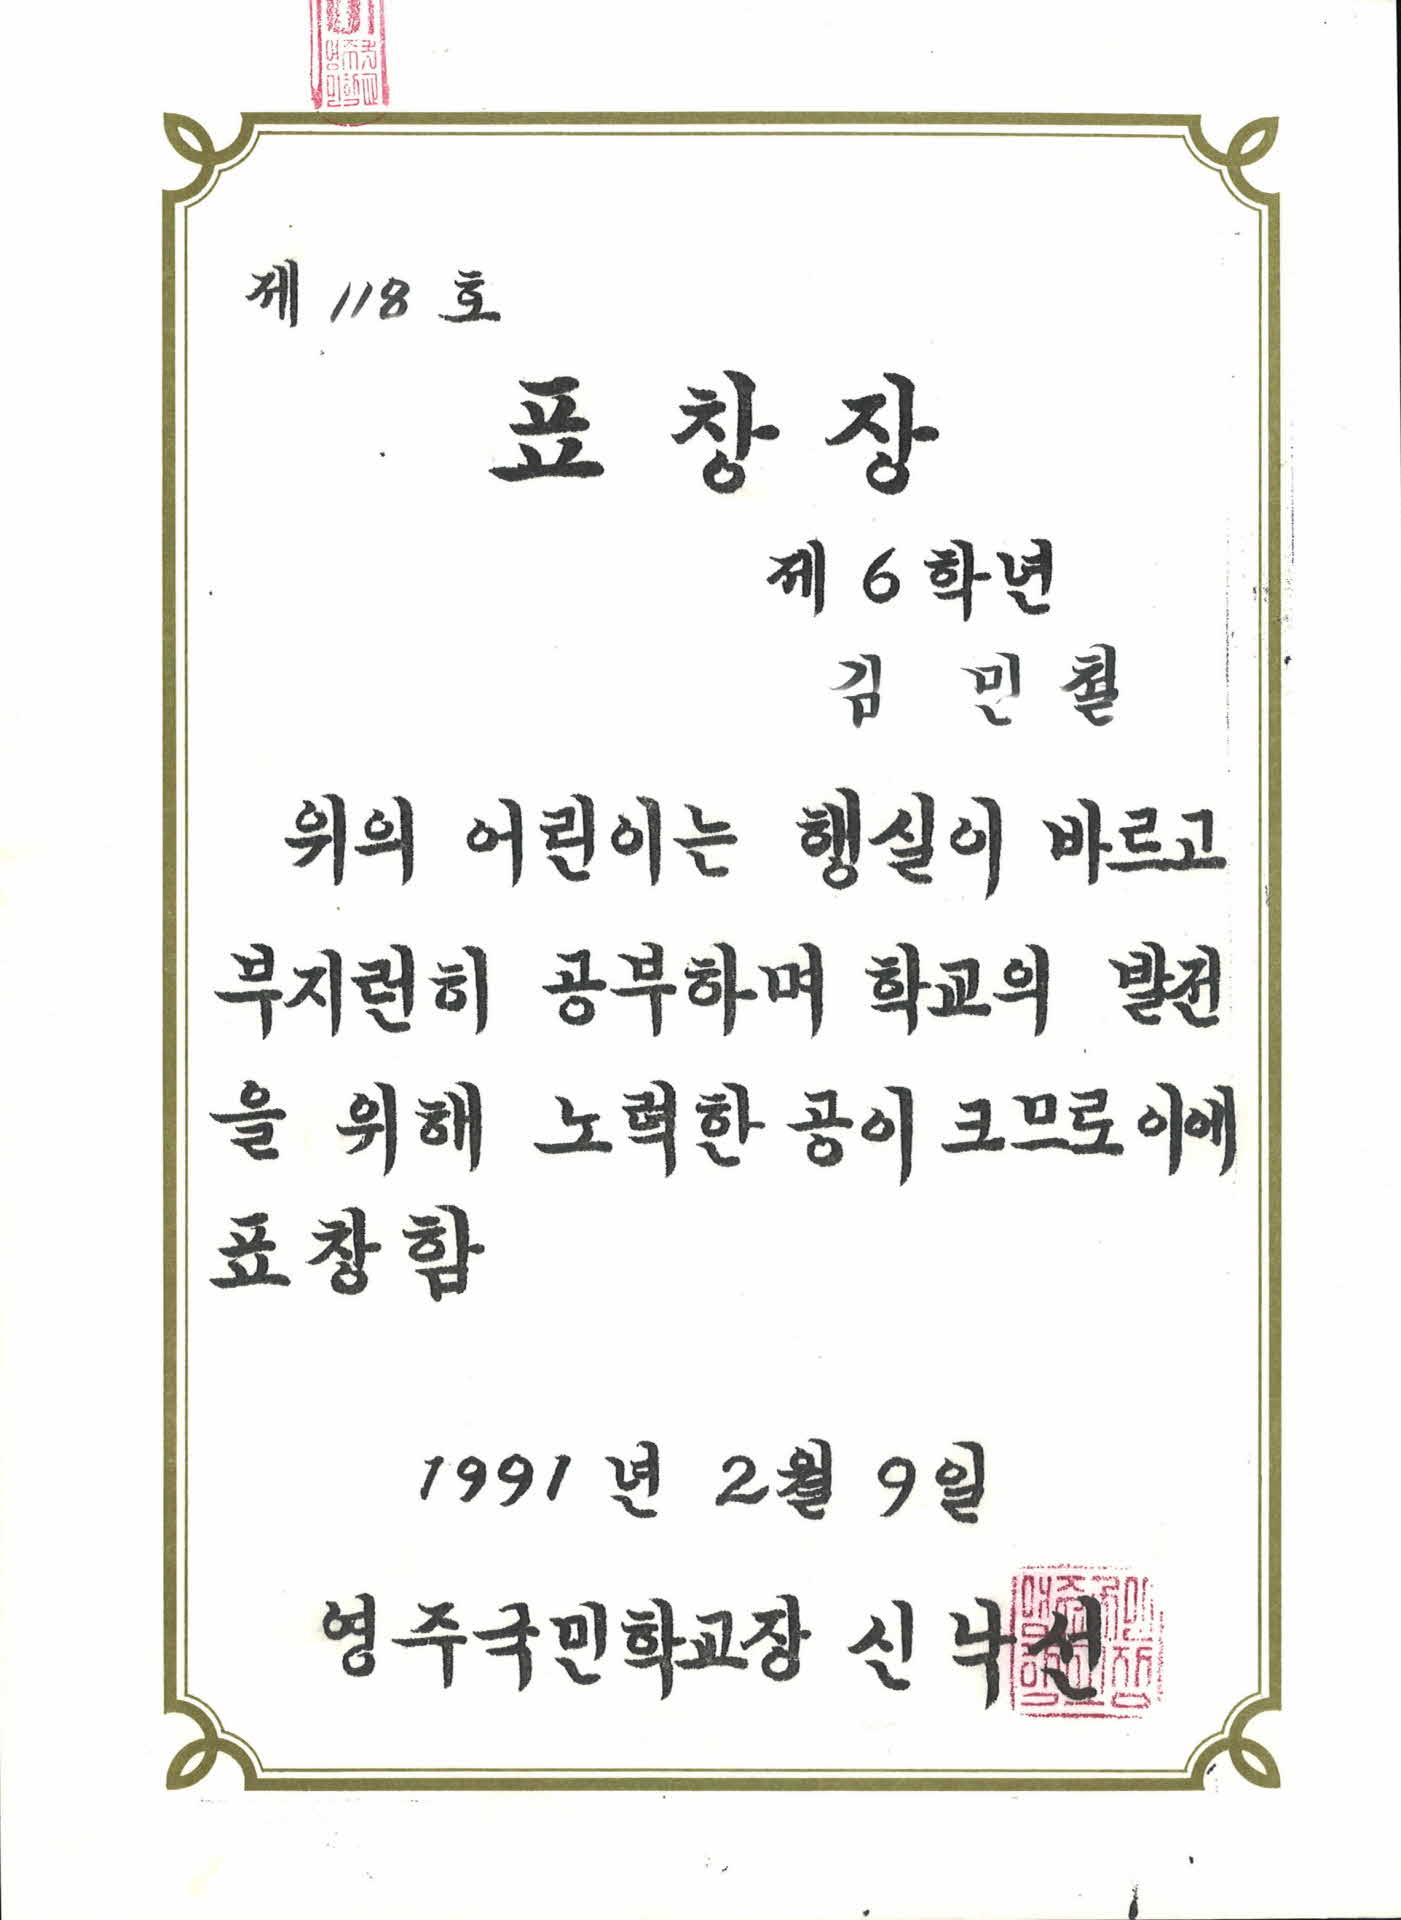 제 118 호
표 창 장
제 6 학년
김 민 철
위의 어린이는 행실이 바르고
부지런히 공부하며 학교의 발전
을 위해 노력한 공이 크므로 이에
표창함
1991 년 2월 9일
영주국민학교장 신낙선